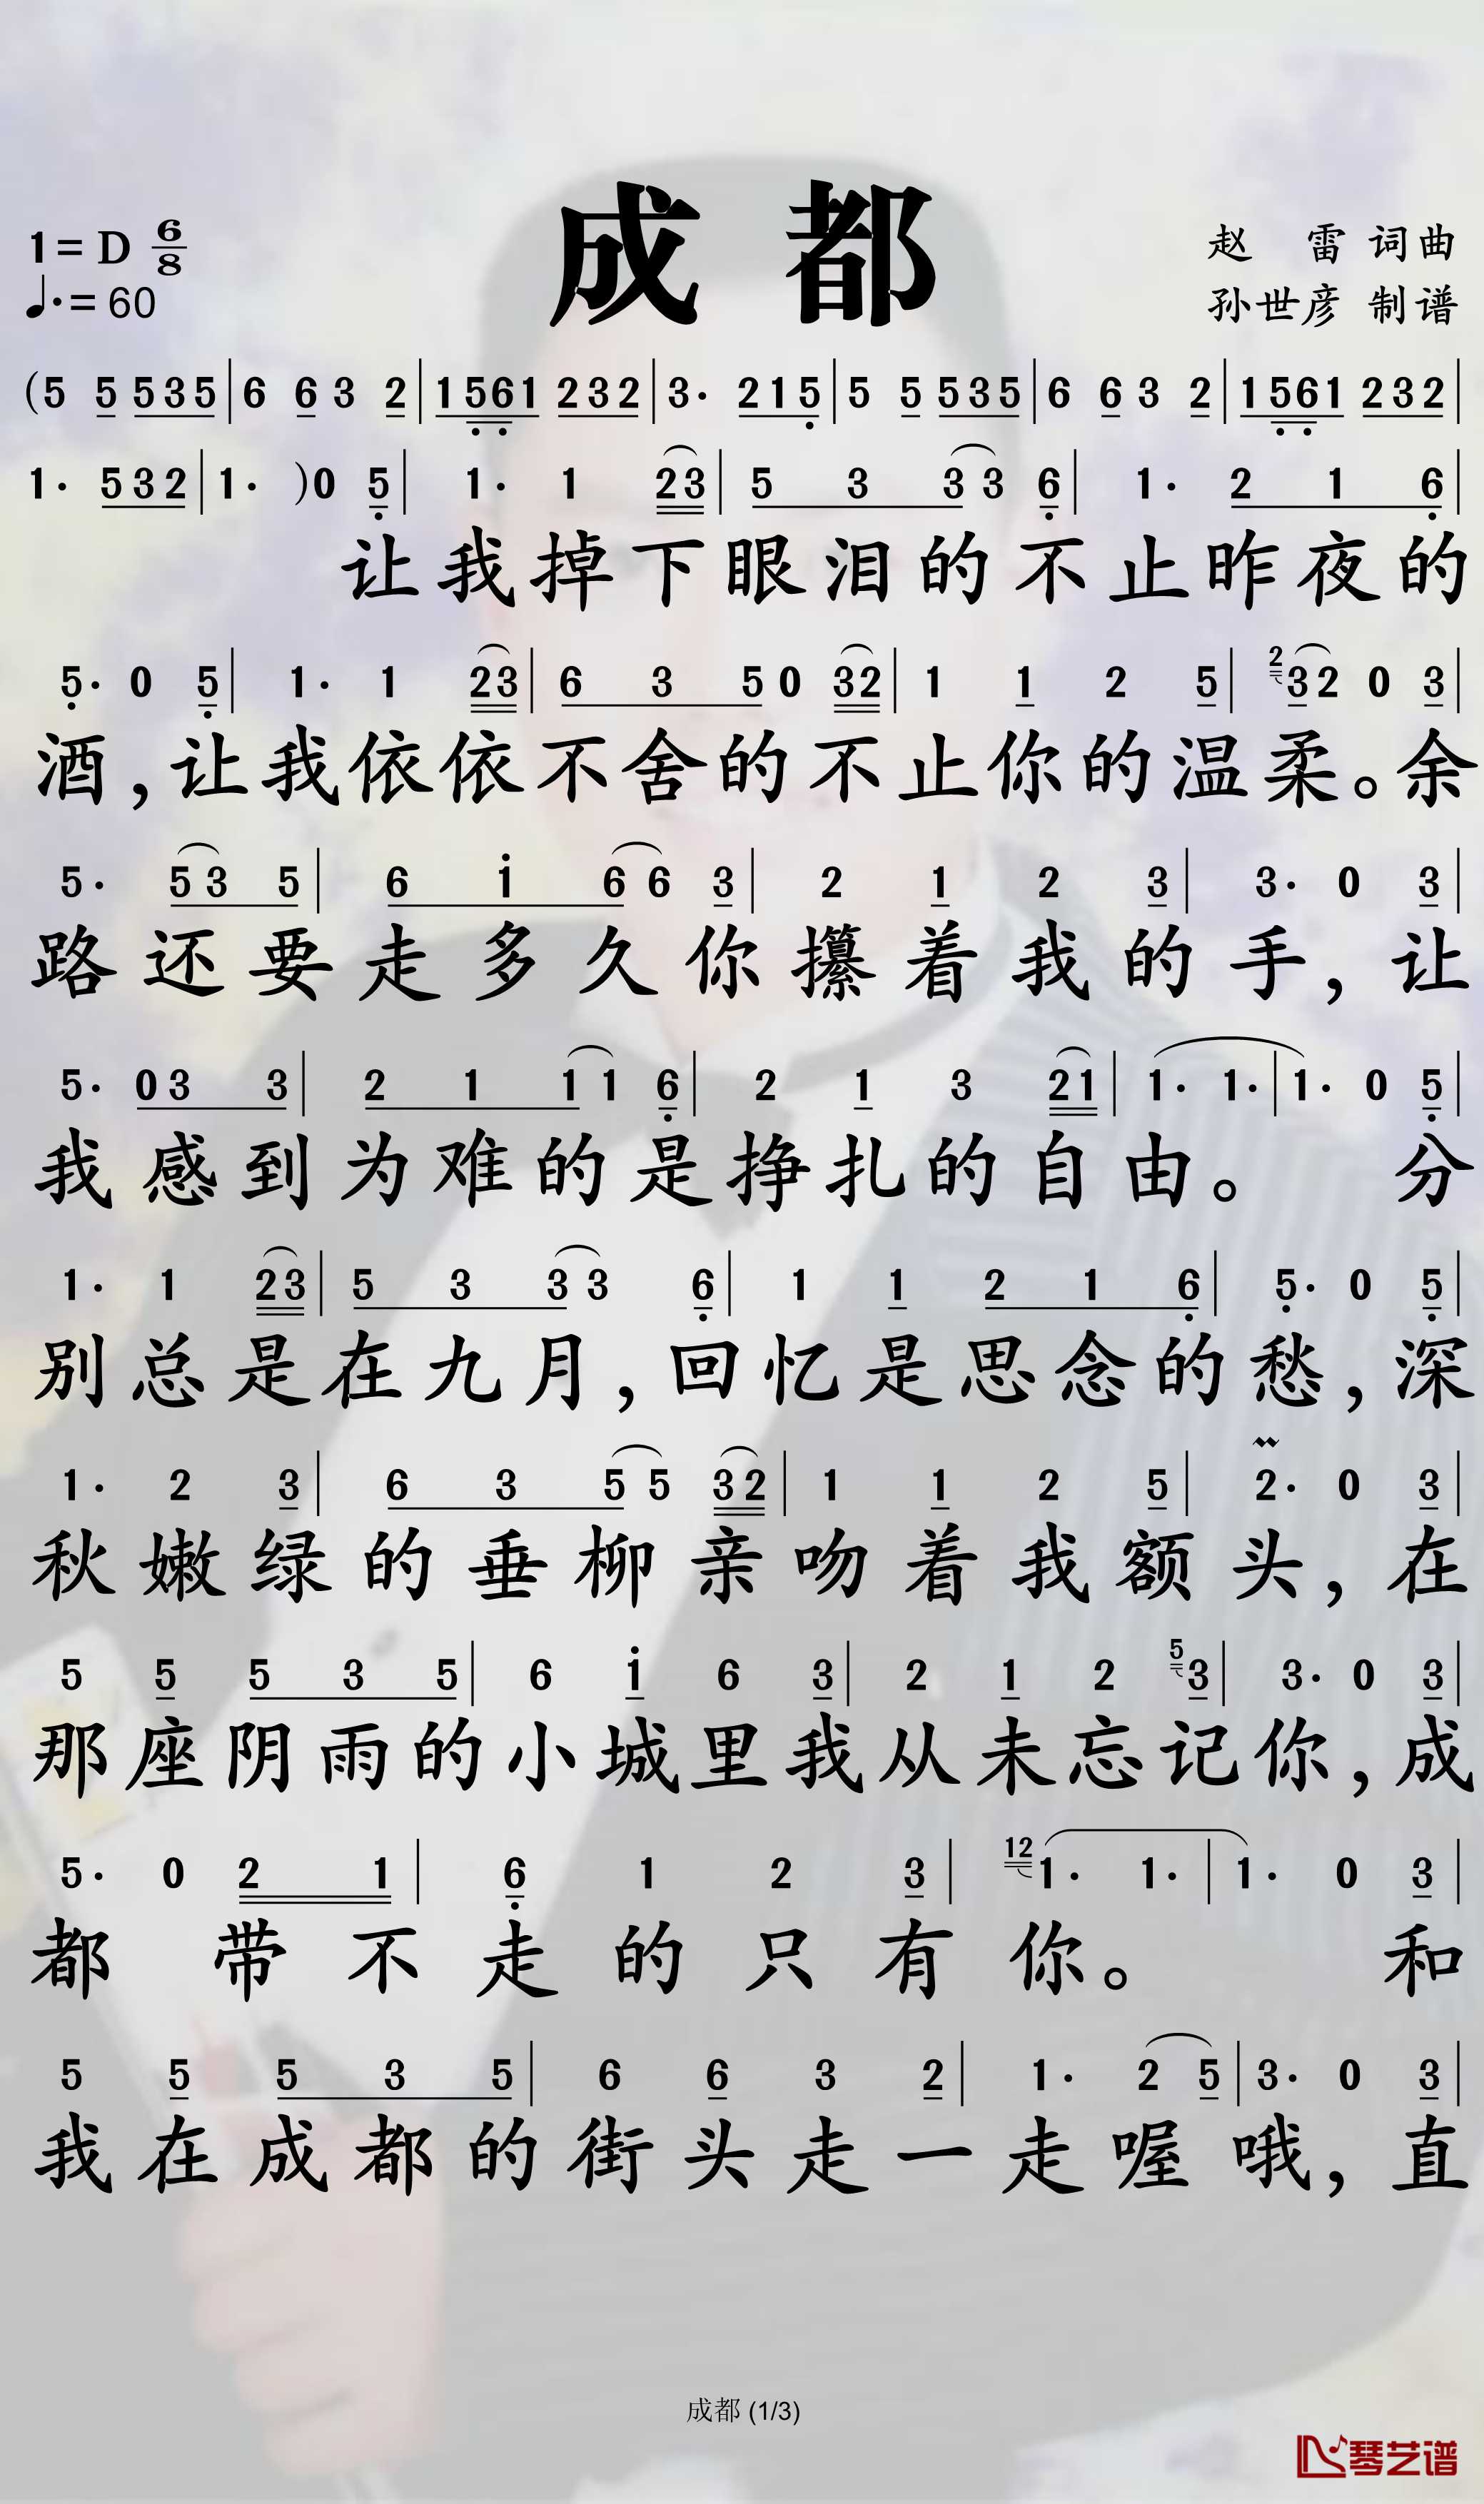 成都
1=D 6/8
♩.=60
赵 雷 词曲
孙世彦 制谱
(5 5 535|6 6 3 2|1561 232|3· 215|5 5 535|6 6 3 2|1561 232|
1· 532|1· )0 5|1· 1 23|5 3 3 3 6|1· 2 1 6|
让我掉下眼泪的不止昨夜的
5· 0 5|1· 1 23|6 3 5 0 32|1 1 2 5|2 3 2 0 3|
酒,让我依依不舍的不止你的温柔。余
5· 5 3 5|6 1 6 6 3|2 1 2 3|3· 0 3|
路还要走多久你攥着我的手,让
5· 0 3 3|2 1 1 1 6|2 1 3 21|1· 1·|1· 0 5|
我感到为难的是挣扎的自由。分
1· 1 23|5 3 3 3 6|1 1 2 1 6|5· 0 5|
别总是在九月,回忆是思念的愁,深
1· 2 3|6 3 5 5 32|1 1 2 5|2· 0 3|
秋嫩绿的垂柳亲吻着我额头,在
5 5 5 3 5|6 1 6 3|2 1 2 5 3|3· 0 3|
那座阴雨的小城里我从未忘记你,成
5· 0 2 1|6 1 2 3|12 1· 1·|1· 0 3|
都 带不走的只有你。和
5 5 5 3 5|6 6 3 2|1· 2 5|3· 0 3|
我在成都的街头走一走喔哦,直
成都 (1/3)
琴艺谱